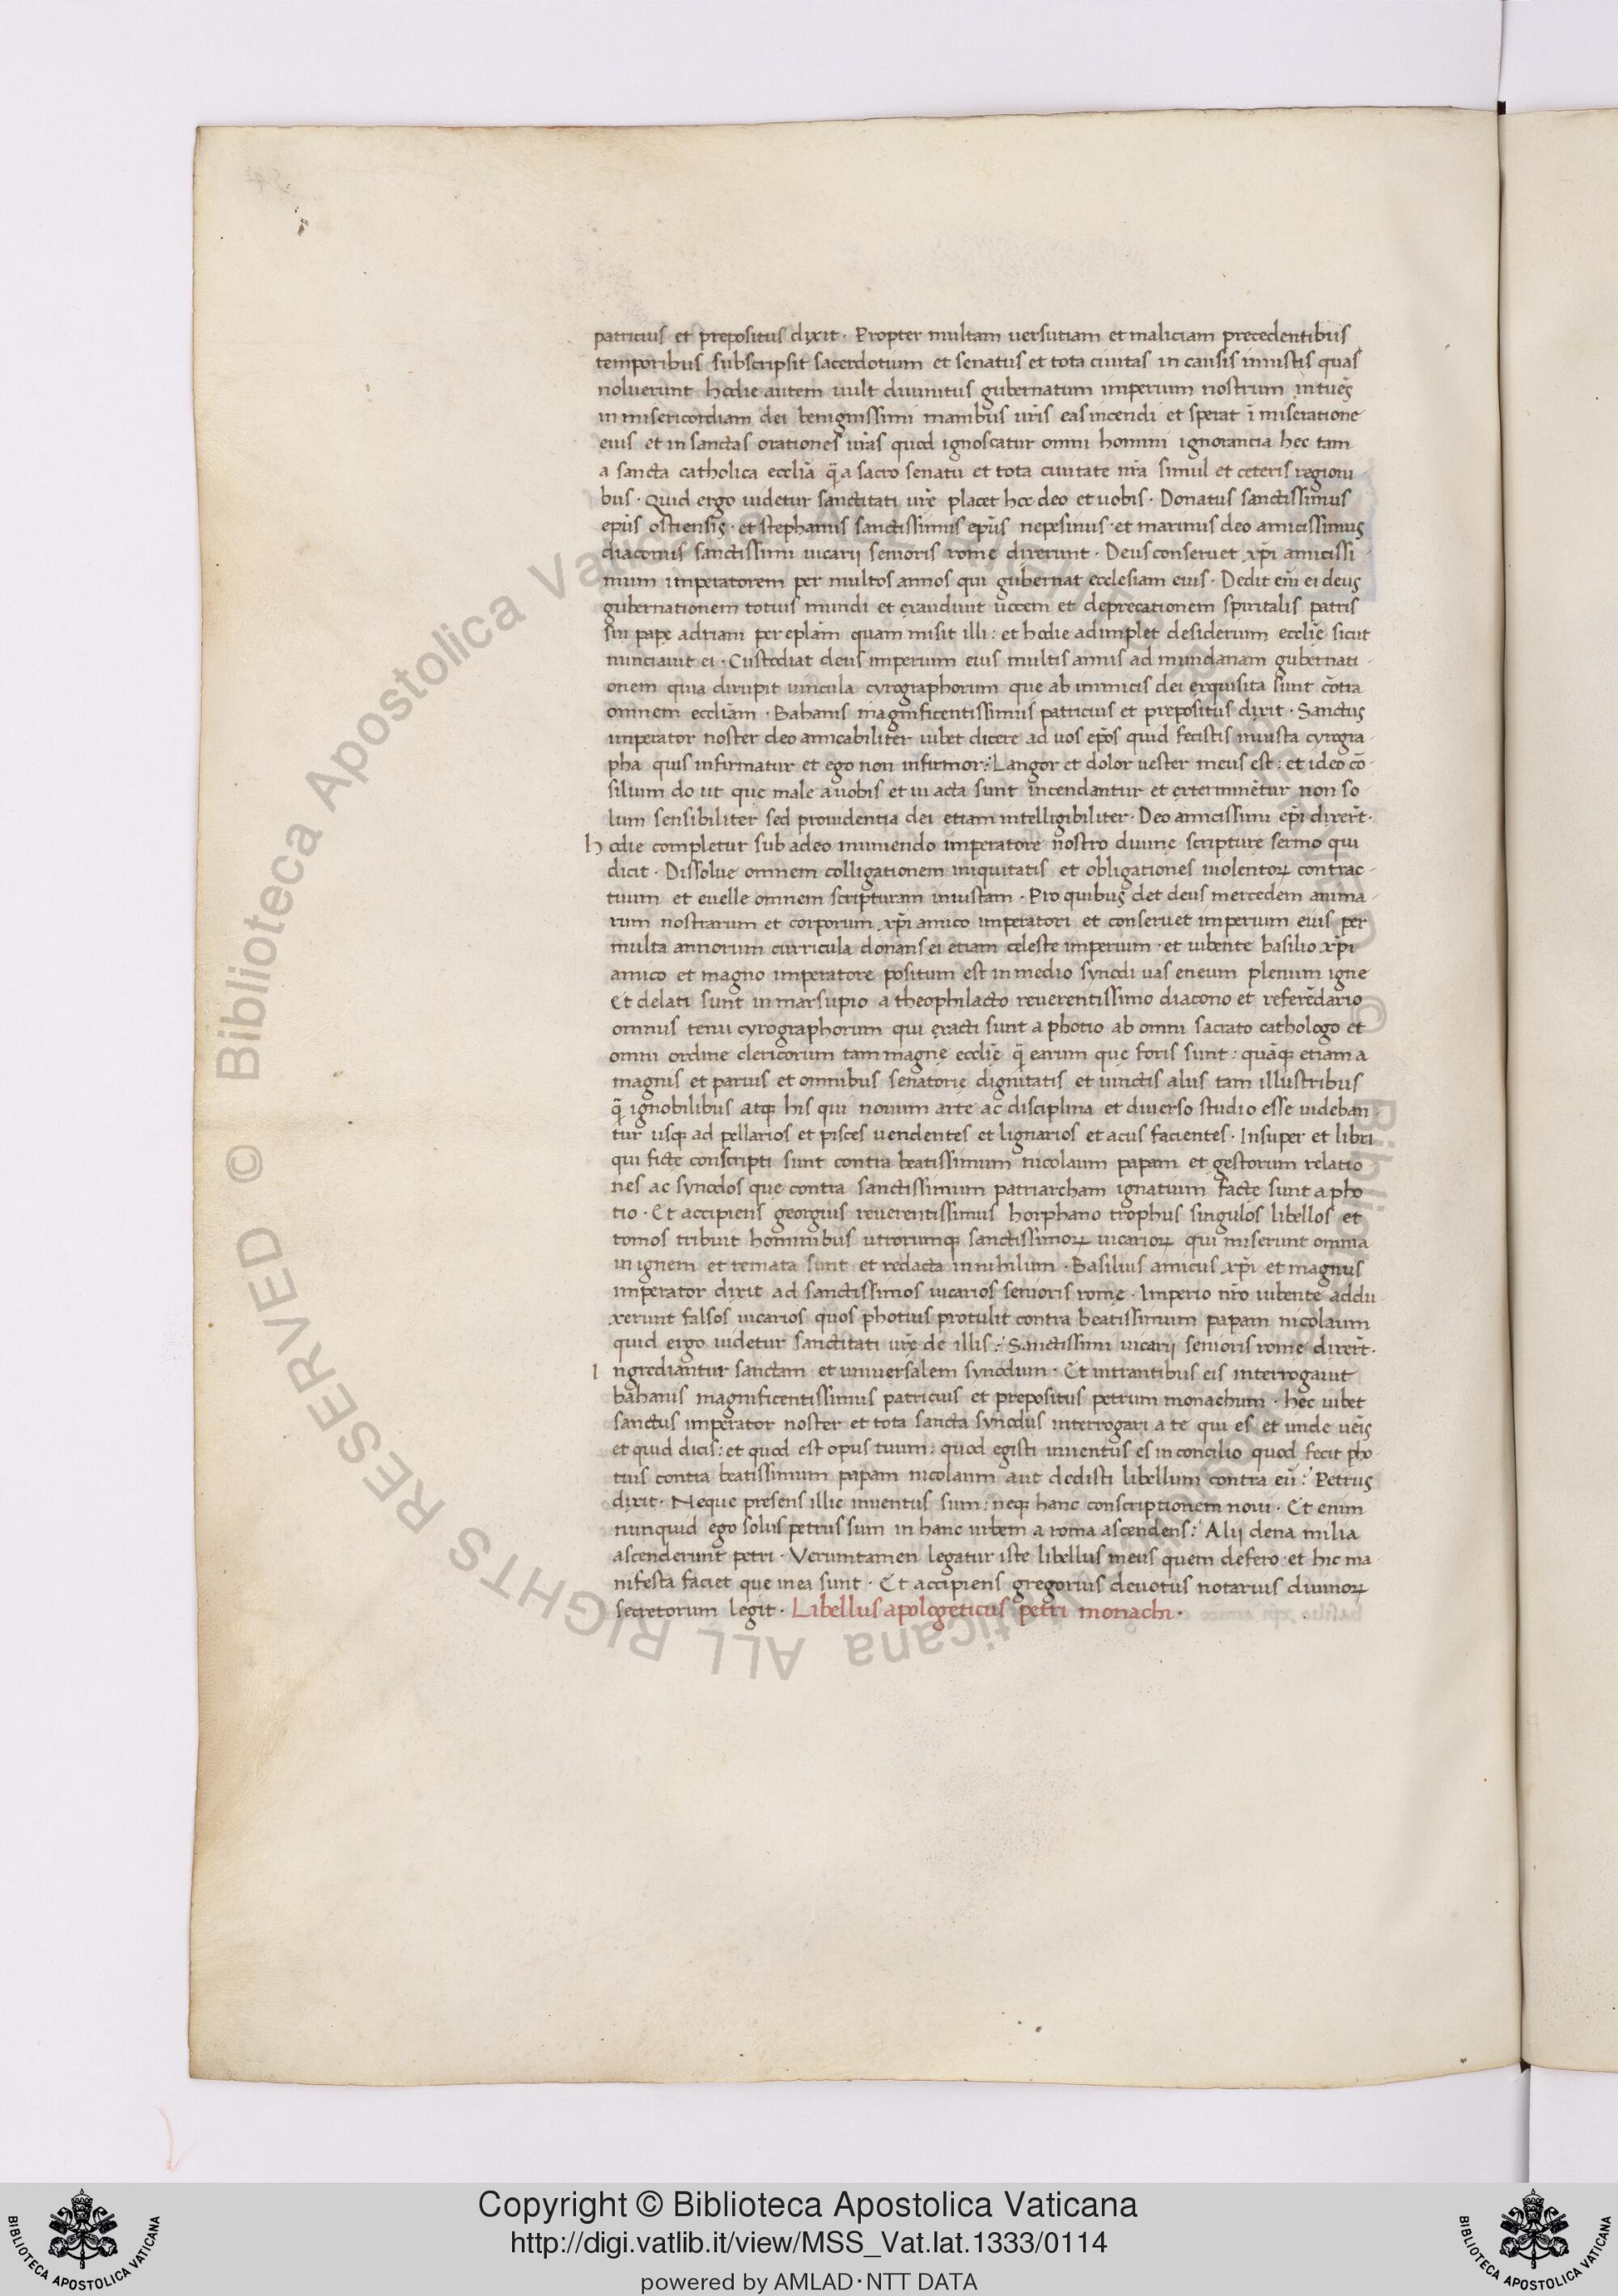 patricius et prepositus dixit · Propter multam uersutiam et maliciam precedentibus
temporibus subscripsit sacerdotium et senatus et tota ciuitas in causis iniustis quas
noluerunt hodie autem uult diuinitus gubernatum imperium nostrum intuēs
in misericordiam dei benignissimi manibus ur̄is eas incendi et sperat ī miseratione
eius et in sanctas orationes ur̄as quod ignoscatur omni homini ignorantia hec tam
a sancta catholica eccliā q̄ a sacro senatu et tota ciuitate nr̄a simul et ceteris regioni
bus · Quid ergo uidetur sanctitati ur̄e placet hoc deo et uobis · Donatus sanctissimus
ep̄us ostiensis · et stephanus sanctissimus ep̄us nepesinus · et marinus deo amicissimus
diaconus sanctissimi uicarij senioris romę dixerunt · Deus conseruet xp̄i amicissi
mum imperatorem per multos annos qui gubernat ecclesiam eius · Dedit em̄ ei deus
gubernationem totius mundi et exaudiuit uocem et deprecationem spiritalis patris
sui papę adriani per eplām quam misit illi : et hodie adimplet desiderium eccliē sicut
nunciauit ei · Custodiat deus imperium eius multis annis ad mundanam gubernati
onem quia dirupit uincula cyrographorum que ab inimicis dei exquisita sunt cōtra
omnem eccliām · Bahanis magnificentissimus patricius et prepositus dixit · Sanctus
imperator noster deo amicabiliter iubet dicere ad uos ep̄os quid fecistis iniusta cyrogra-
pha quis infirmatur et ego non infirmor :' Langor et dolor uester meus est : et ideo cō-
silium do ut que male a uobis et ui acta sunt incendantur et exterminētur non so
lum sensibiliter sed prouidentia dei etiam intelligibiliter · Deo amicissimi ep̄i dixer̄t ·
hodie completur sub a deo muniendo imperatore nostro diuine scripture sermo qui
dicit · Dissolue omnem colligationem iniquitatis et obligationes uiolentoꝝ contrac-
tuum et euelle omnem scripturam iniustam · Pro quibus det deus mercedem anima-
rum nostrarum et corporum xp̄i amico imperatori et conseruet imperium eius per
multa annorum curricula donans ei etiam celeste imperium · et iubente basilio xp̄i
amico et magno imperatore positum est in medio synodi uas eneum plenum igne
Et delati sunt in marsupio a theophilacto reuerentissimo diacono et referēdario
omnis tenu cyrographorum qui exacti sunt a photio ab omni sacrato cathologo et
omni ordine clericorum tam magnę eccliē q̄ earum quę foris sunt : quāqꝫ etiam a
magnis et paruis et omnibus senatorie dignitatis et uinctis aliis tam illustribus
q̄ ignobilibus atqꝫ his qui nouum arte ac disciplina et diuerso studio esse uideban
tur usqꝫ ad pellarios et pisces uendentes et lignarios et acus facientes · Insuper et libri
qui ficte conscripti sunt contra beatissimum nicolaum papam et gestorum relatio
nes ac synodos que contra sanctissimum patriarcham ignatium factę sunt a pho
tio · Et accipiens georgius reuerentissimus horphano trophus singulos libellos et
tomos tribuit hominibus utrorumqꝫ sanctissimoꝝ uicarioꝝ qui miserunt omnia
in ignem et remata sunt et redacta in nihilum · Basilius amicus xp̄i et magnus
imperator dixit ad sanctissimos uicarios senioris romę · Imperio nr̄o iubente addu
xerunt falsos uicarios quos photius protulit contra beatissimum papam nicolaum
quid ergo uidetur sanctitati ur̄e de illis :' Sanctissimi uicarij senioris romę dixer̄t ·
Ingrediantur sanctam et uniuersalem synodum · Et intrantibus eis interrogauit
bahanis magnificentissimus patricius et prepositus petrum monachum · hęc iubet
sanctus imperator noster et tota sancta synodus interrogari a te qui es et unde uēis
et quid dicis : et quod est opus tuum : quod egisti inuentus es in concilio quod fecit pho
tius contra beatissimum papam nicolaum aut dedisti libellum contra eū :' Petrus
dixit · Neque presens illic inuentus sum : neqꝫ hanc conscriptionem noui · Et enim
nunquid ego solus petrus sum in hanc urbem a roma ascendens :' Alij dena milia
ascenderunt petri · Veruntamen legatur iste libellus meus quem defero · et hic ma
nifesta faciet que mea sunt · Et accipiens gregorius deuotus notarius diuinoꝝ
secretorum legit · Libellus apologeticus petri monachi ·
© Biblioteca Apostolica Vaticana ALL RIGHTS RESERVED
Copyright © Biblioteca Apostolica Vaticana
http://digi.vatlib.it/view/MSS_Vat.lat.1333/0114
powered by AMLAD·NTT DATA
BIBLIOTECA APOSTOLICA VATICANA
BIBLIOTECA APOSTOLICA VATICANA